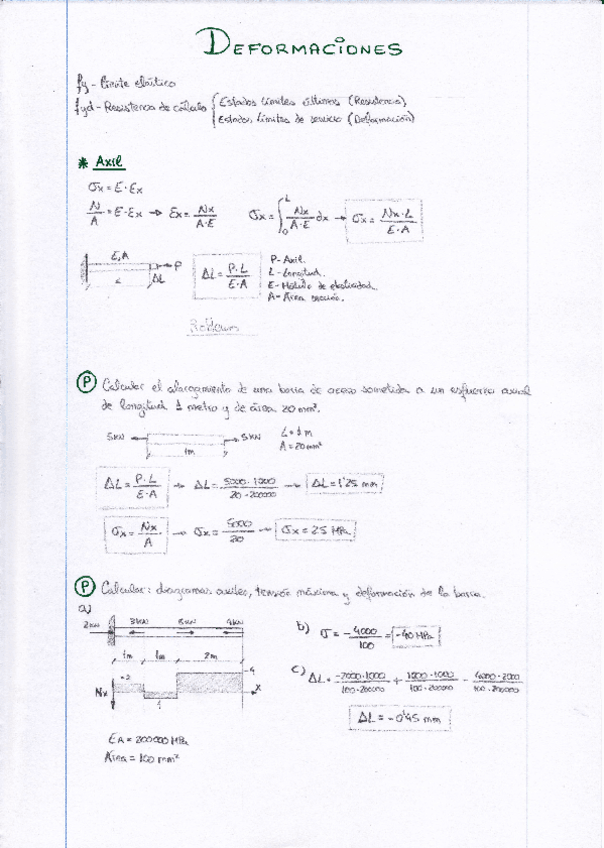 DEFORMACIONES
fy - Límite elástico
fyd - Resistencia de cálculo { Estados límites últimos (Resistencia)
Estados límites de servicio (Deformación)
* Axil
σx = E · εx
N/A = E · εx → εx = Nx/(A·E)
σx = ∫₀ᴸ Nx/(A·E) dx → σx = Nx·L/(E·A)
E,A
P
L
ΔL
ΔL = P·L/(E·A)
P - Axil.
L - Longitud.
E - Módulo de elasticidad.
A - Área sección.
P Calcular el alargamiento de una barra de acero sometida a un esfuerzo axial
de longitud 1 metro y de área 20 mm².
5KN
5KN
1m
L = 1 m
A = 20 mm²
ΔL = P·L/(E·A) → ΔL = 5000·1000/(20·200000) → ΔL = 1'25 mm
σx = Nx/A → σx = 5000/20 → σx = 25 MPa
P Calcular: diagramas axiles, tensión máxima y deformación de la barra.
a)
2KN 3KN 5KN 4KN
1m 1m 2m
-2
-4
Nx
1
x
b) σ = -4000/100 = -40 MPa
c) ΔL = -2000·1000/(100·200000) + 1000·1000/(100·200000) - 4000·2000/(100·200000)
ΔL = -0'45 mm
EA = 200000 MPa
Área = 100 mm²